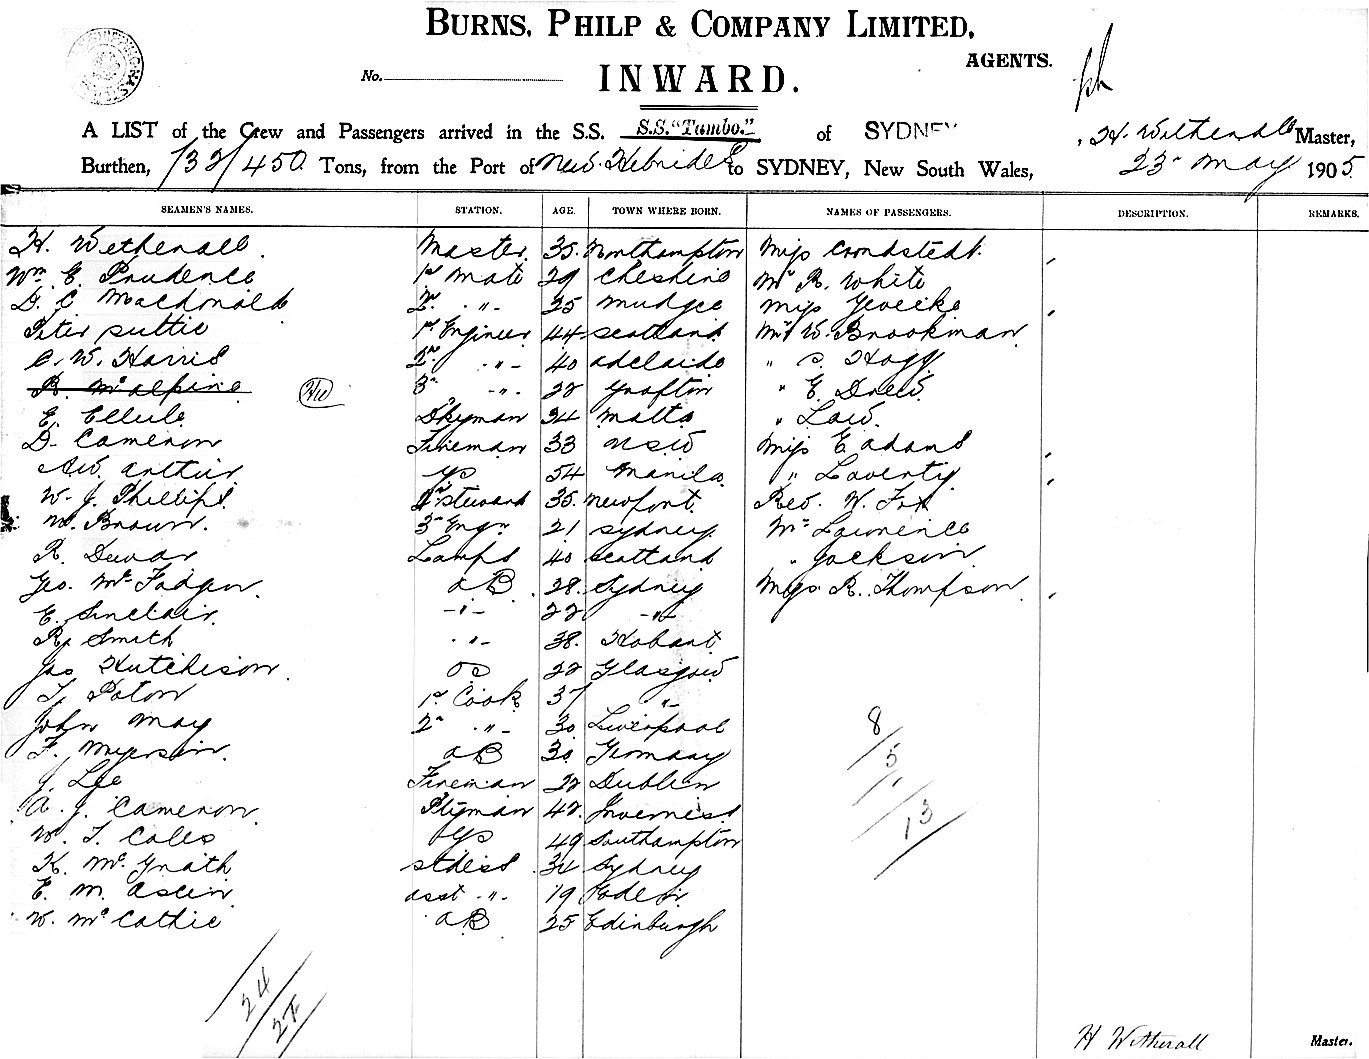 BURNS, PHILP & COMPANY LIMITED,
AGENTS.
No.
INWARD.
A LIST of the Crew and Passengers arrived in the S.S. S.S. "Tambo." of SYDNEY, H. Wetherall Master,
Burthen, 732/450 Tons, from the Port of New Hebrides to SYDNEY, New South Wales, 23 May 1905.
SEAMEN'S NAMES. STATION. AGE. TOWN WHERE BORN. NAMES OF PASSENGERS. DESCRIPTION. REMARKS.
H. Wetherall. Master. 35. Northampton Miss Cronstedt.
Wm. E. Prudence 1st Mate 29 Cheshire Mr R. White
D. C. Macdonald 2nd " 25 Mudgee Miss
Peter Suttie 1st Engineer 44 Scotland Mr W. Brookman
C. W. Harris 2nd " 40 Adelaide " S. Hogg
R. McAlpine HW 3rd " 22 Grafton " E. Drew.
E. Ellule Dkyman 34 Malta " Law.
D. Cameron Fireman 33 NSW Miss E Adams
Arthur 54 Manila " Laverty
W. J. Phillips Steward 35. Newport. Rev. W. Fox
W. Brown. 3rd Engr 21 Sydney. Mr Lawrence
R. Dewar Lamps 40 Scotland " Jackson
Geo. McFadgen. AB 28. Sydney Miss R. Thompson.
E. Sinclair. " 22 "
R. Smith " 38. Hobart
Jas Hutchison. OS 22 Glasgow
T. Paton 1st Cook 37 "
John May 2nd " 30 Liverpool
F. AB 30 Germany
J. Lee Fireman 22 Dublin
A. J. Cameron. 42. Inverness
W. T. Coles 49 Southampton
K. McGrath Stdess 34 Sydney
E. M. asst " 19
W. McCathie AB 25 Edinburgh
8/5/13
24/25
H Witherall Master.